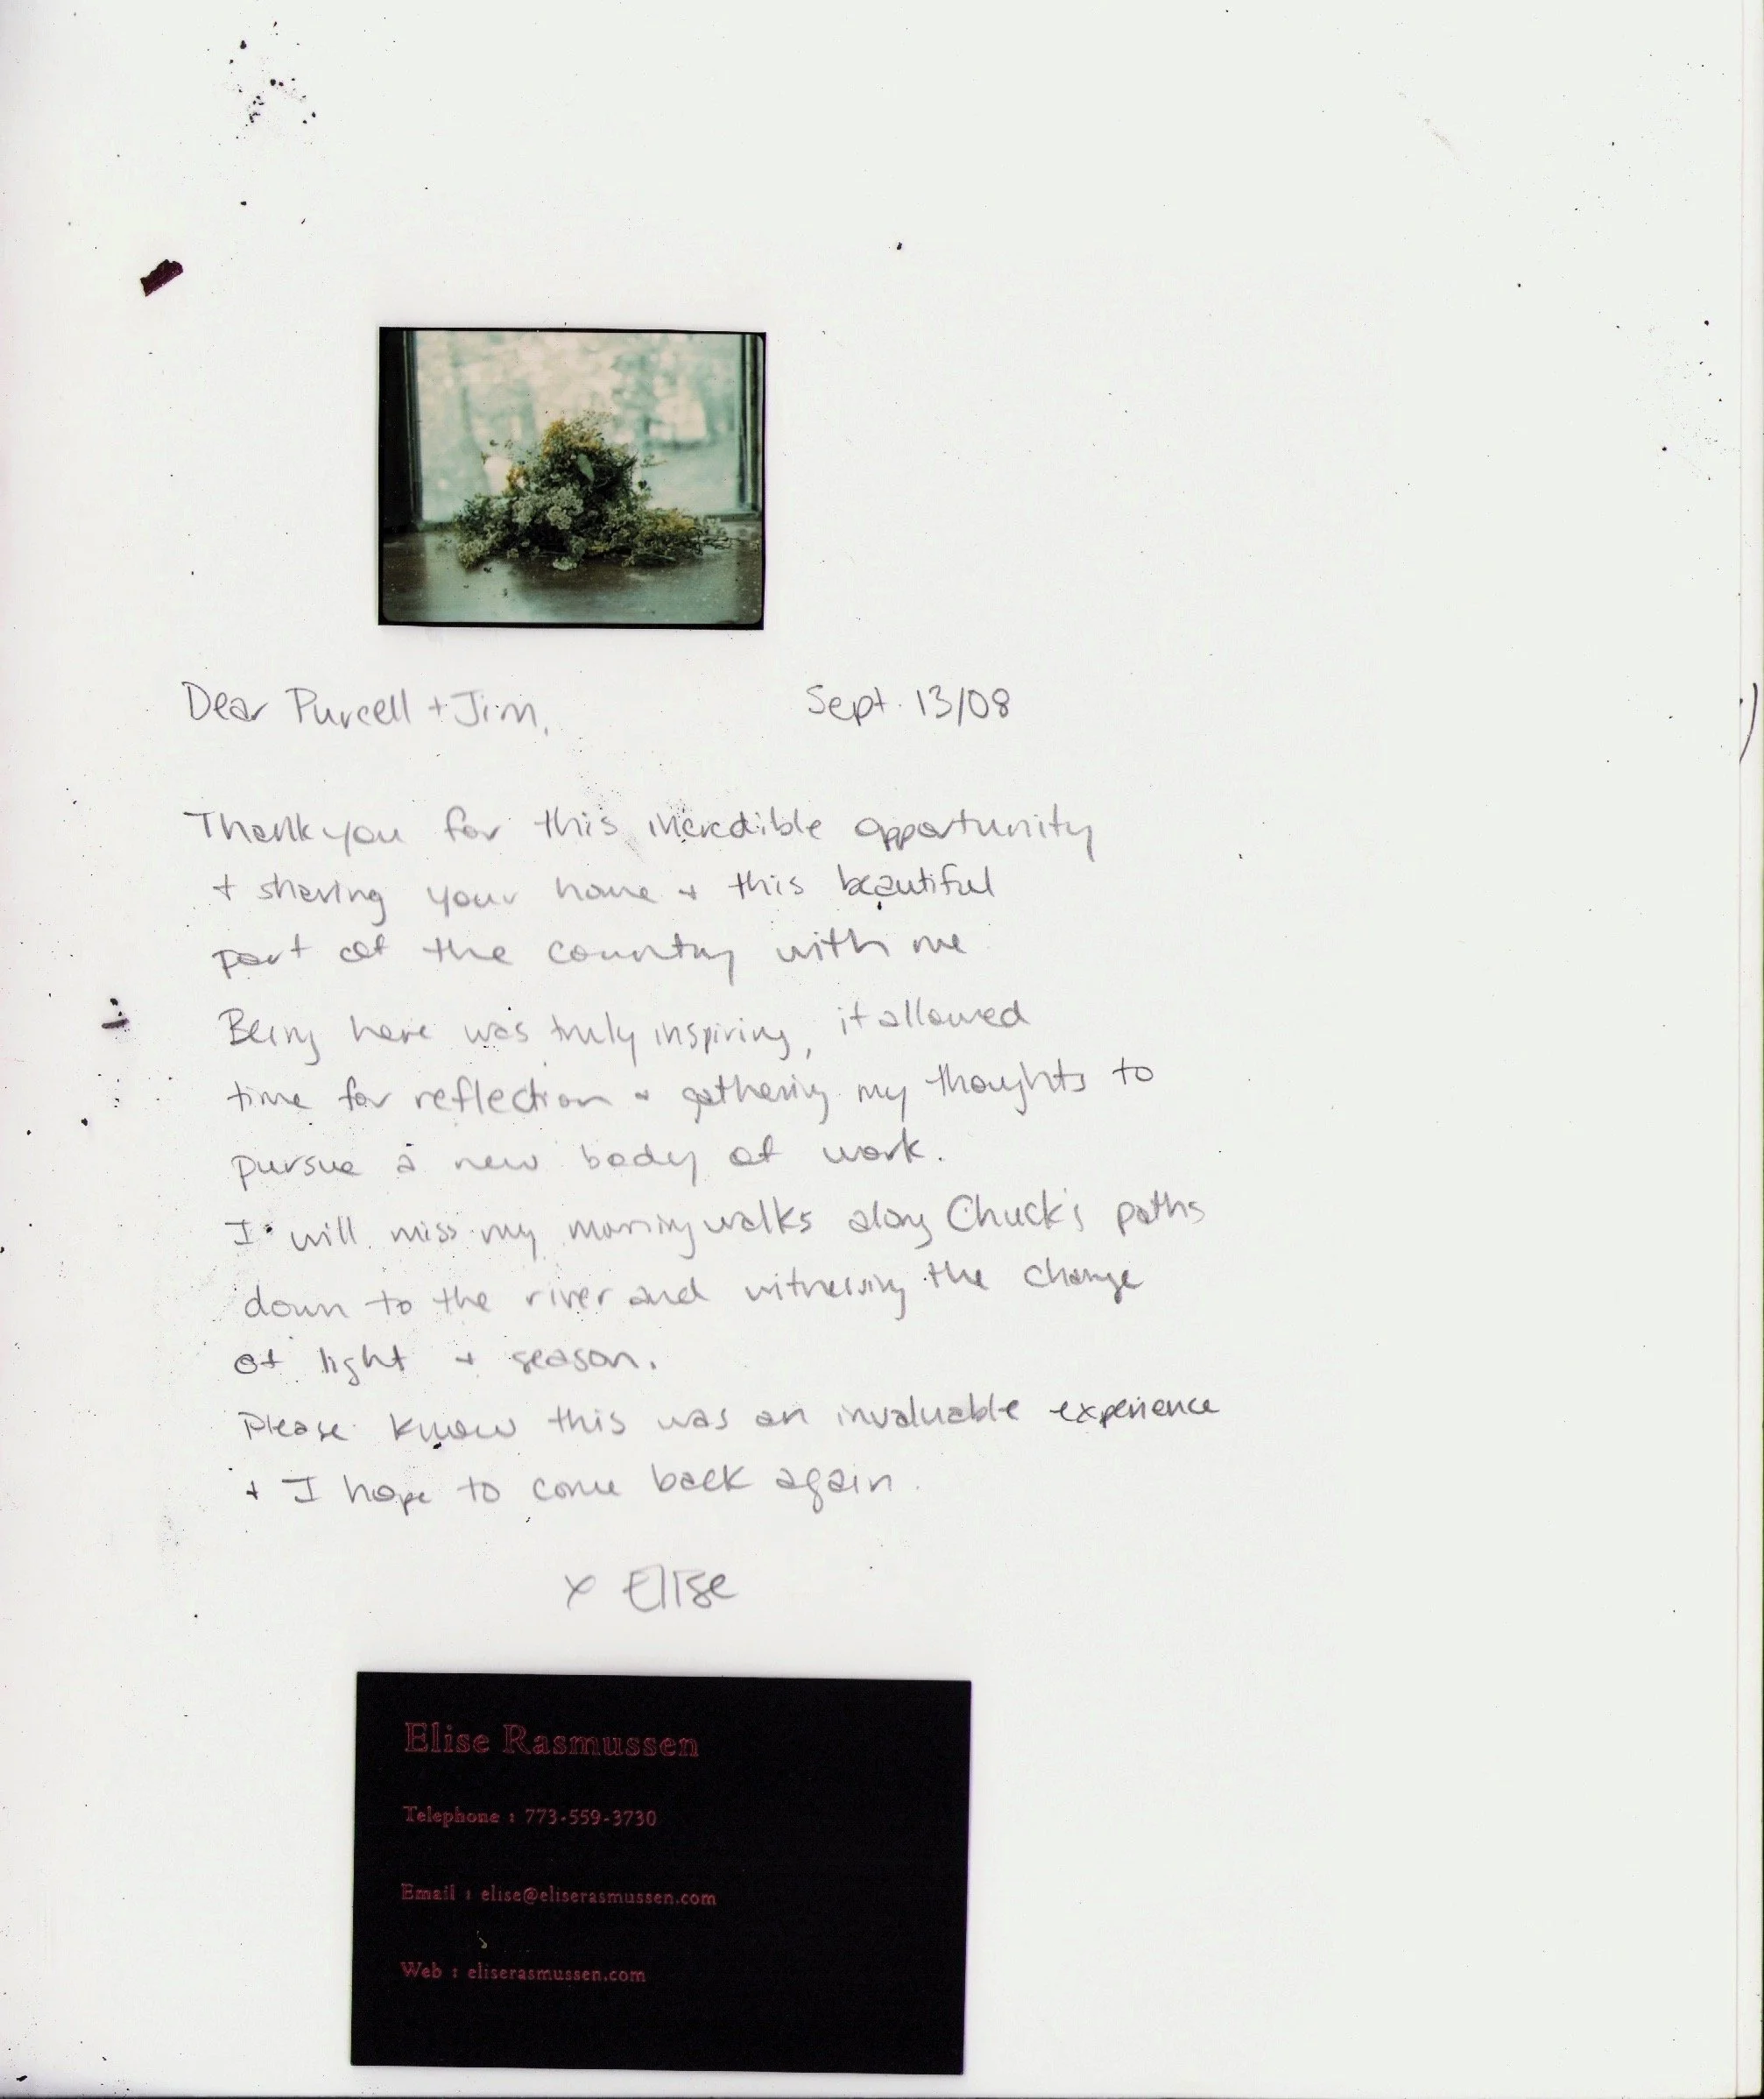 Dear Purcell + Jim,
Sept. 13/08
Thank you for this incredible opportunity
+ sharing your home + this beautiful
part of the country with me
Being here was truly inspiring, it allowed
time for reflection + gathering my thoughts to
pursue a new body of work.
I will miss my morning walks along Chuck's paths
down to the river and witnessing the change
of light + season.
Please know this was an invaluable experience
+ I hope to come back again.
x Elise
Elise Rasmussen
Telephone : 773-559-3730
Email : elise@eliserasmussen.com
Web : eliserasmussen.com